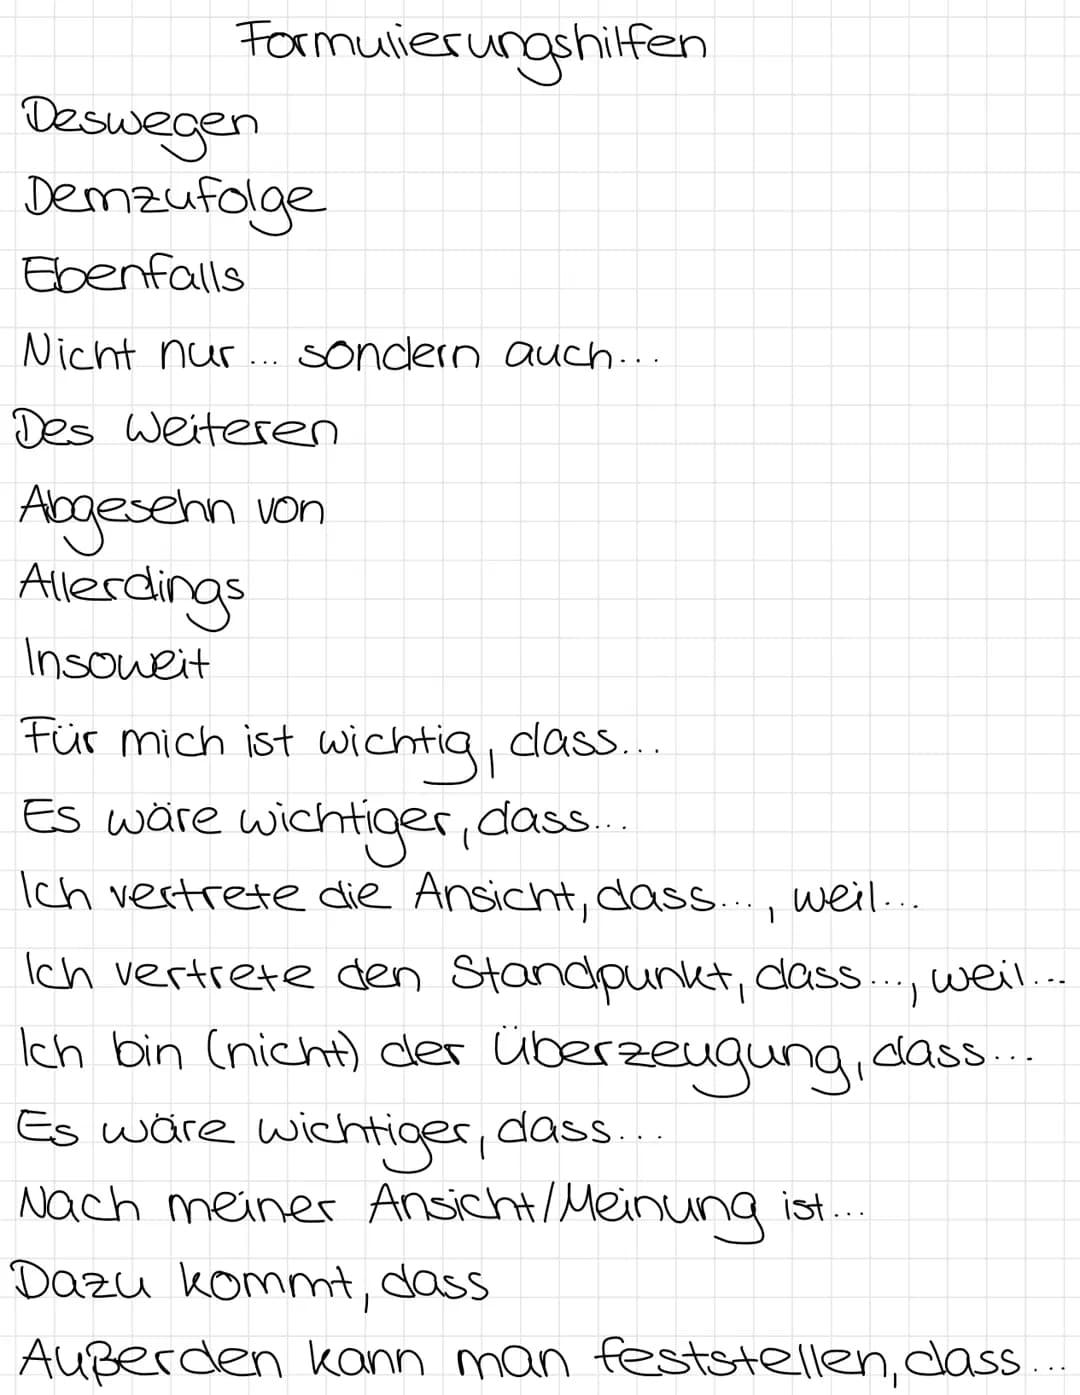 Formulierungshilfen
Deswegen
Demzufolge
Ebenfalls
Nicht nur... sondern auch...
Des Weiteren
Abgesehn von
Allerdings
Insoweit
Für mich ist wichtig, dass...
Es wäre wichtiger, dass...
Ich vertrete die Ansicht, dass..., weil...
Ich vertrete den Standpunkt, dass..., weil...
Ich bin (nicht) der Überzeugung, dass...
Es wäre wichtiger, dass...
Nach meiner Ansicht/Meinung ist...
Dazu kommt, dass
Außerden kann man feststellen, dass...